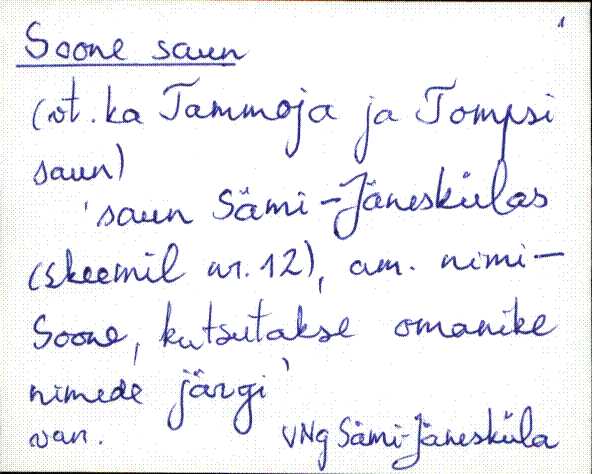 1
Soone saun
(vt. ka Tammoja ja Tompsi
saun)
'saun Sämi-Jäneskülas
(skeemil nr. 12), am. nimi-
Soone, kutsutakse omanike
nimede järgi'
van. VNg Sämi-Jäneskü̈la